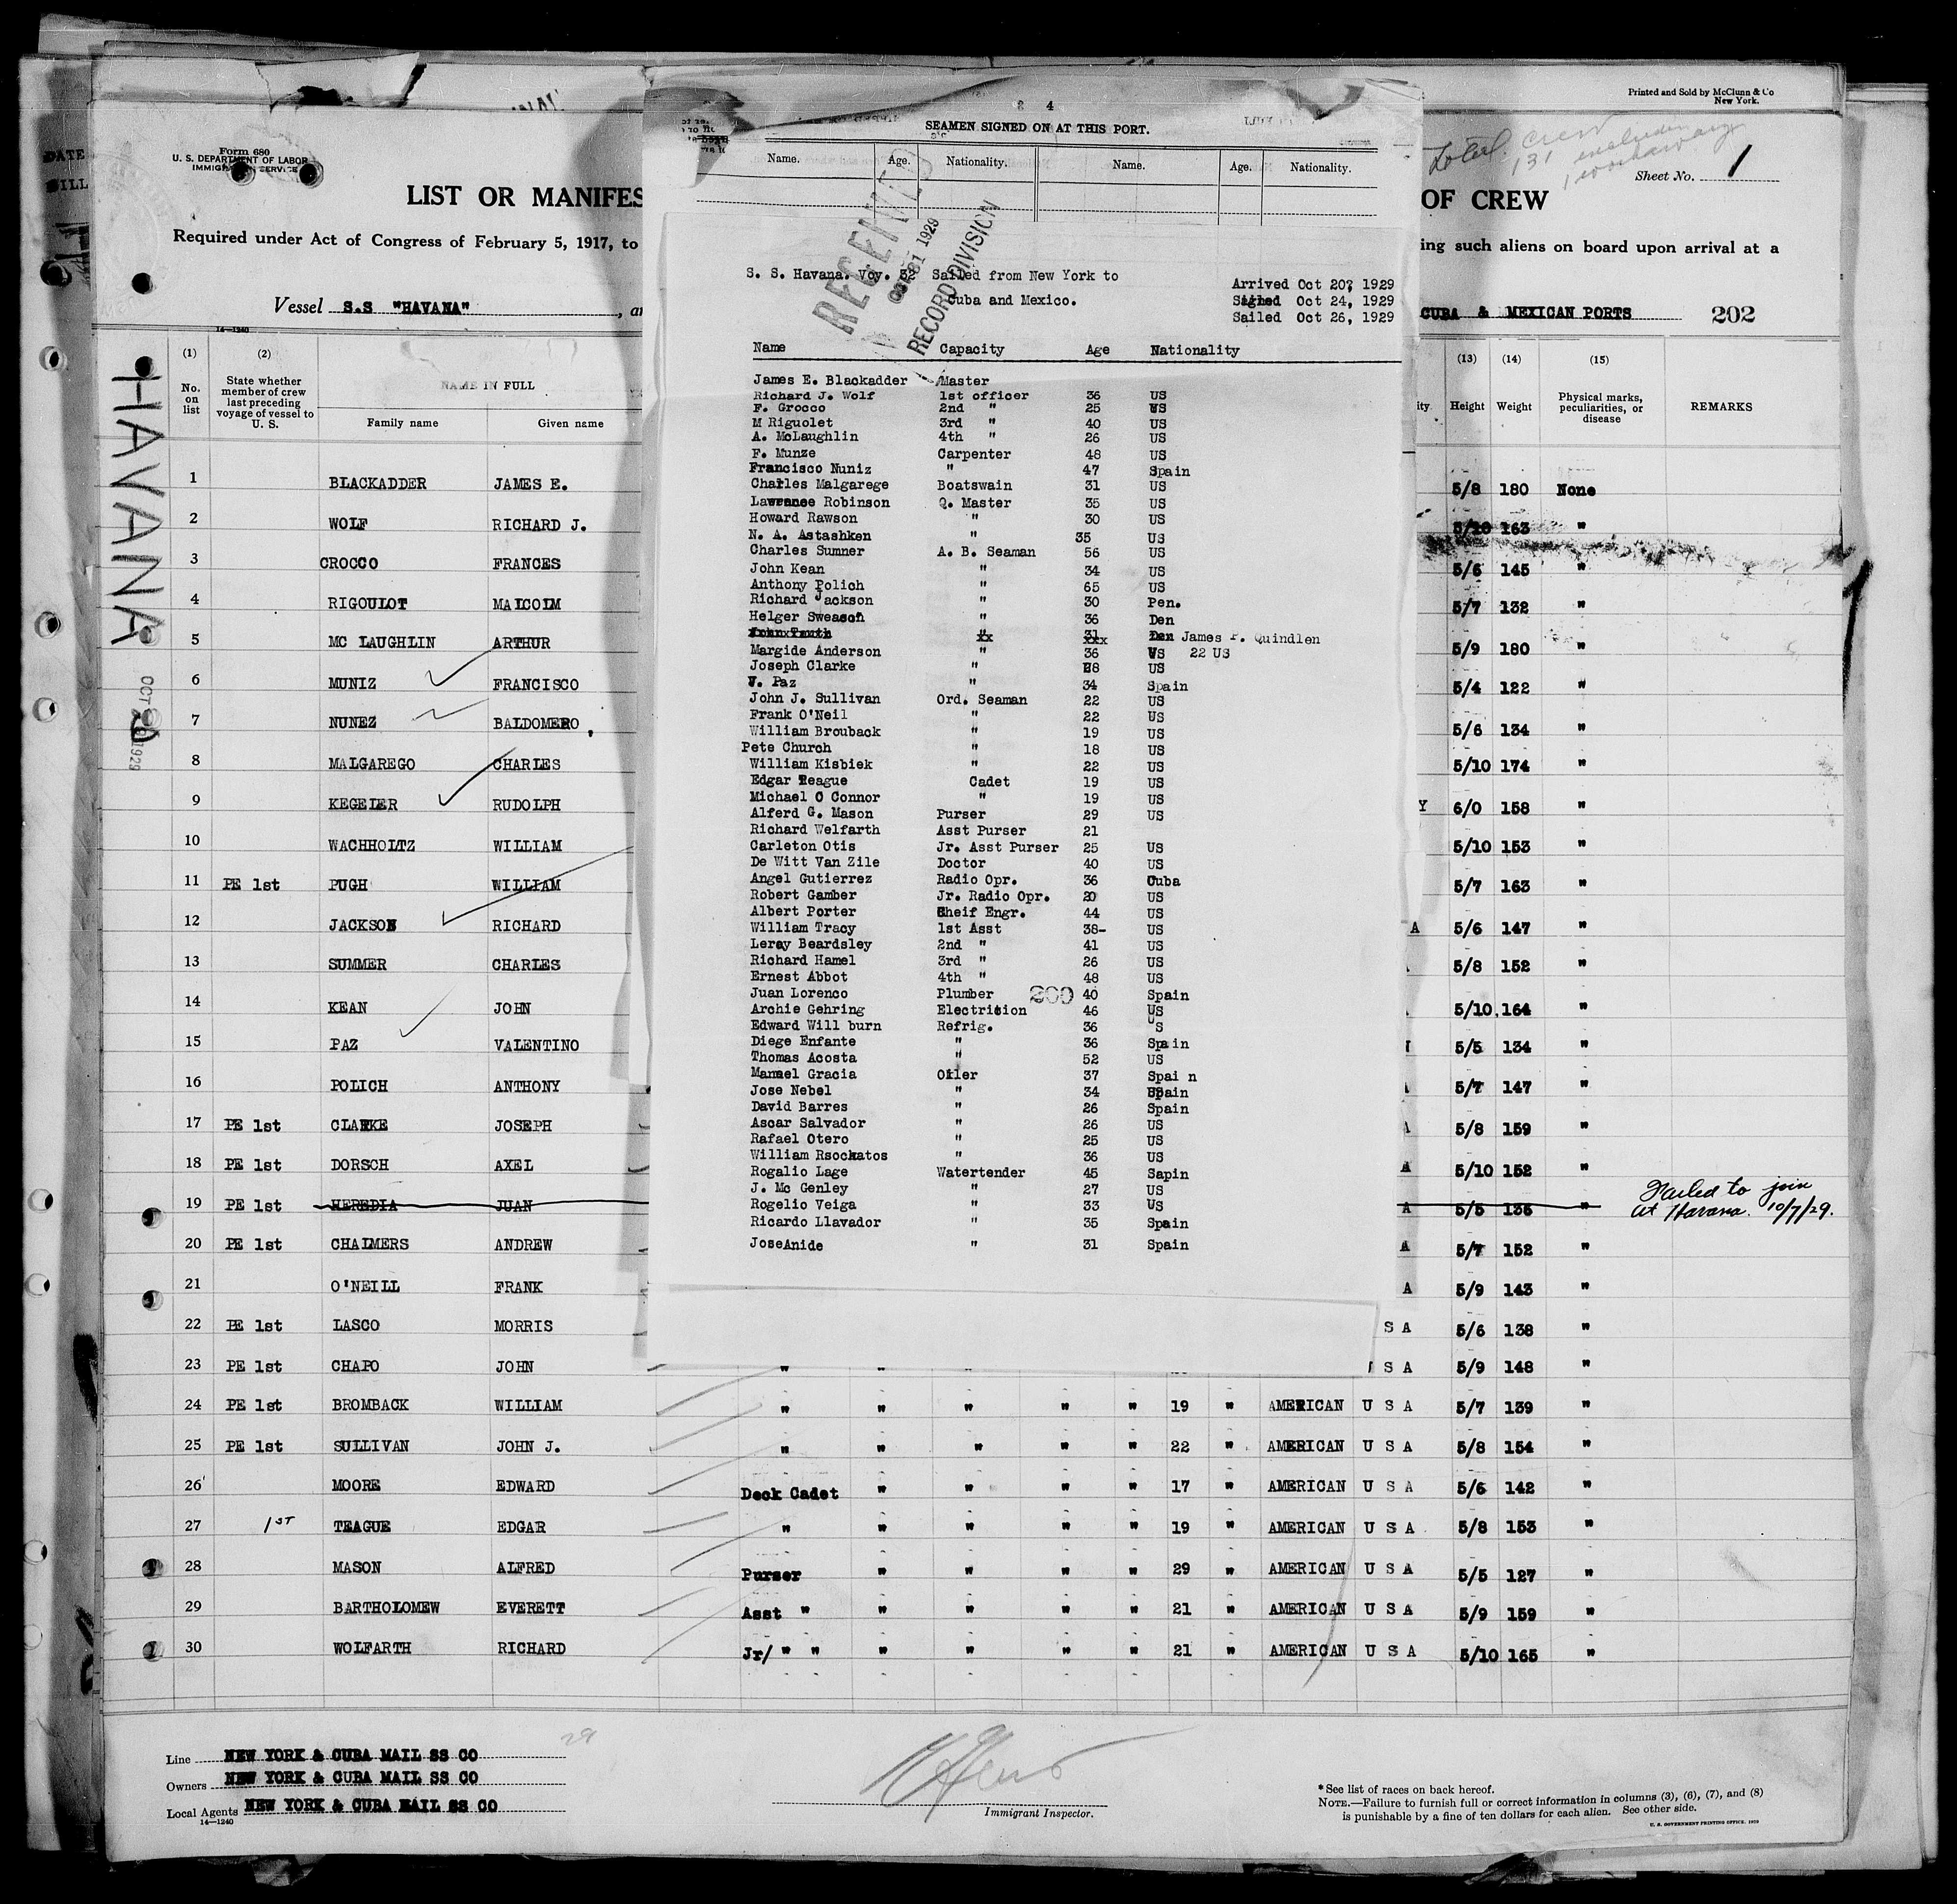 DATE
Printed and Sold by McClunn & Co
New York.
2 4
SEAMEN SIGNED ON AT THIS PORT.
Name. Age. Nationality. Name. Age. Nationality.
Form 680
U. S. DEPARTMENT OF LABOR
IMMIGRATION SERVICE
Total crew
131 including
1 workaway
Sheet No. 1
LIST OR MANIFES OF CREW
Required under Act of Congress of February 5, 1917, to ing such aliens on board upon arrival at a
Vessel S.S "HAVANA" , CUBA & MEXICAN PORTS 202
14—1240
RECEIVED
OCT 31 1929
RECORD DIVISION
HAVANA
OCT 1929
S. S. Havana. Voy. 32 Sailed from New York to
Cuba and Mexico.
Arrived Oct 20, 1929
Signed Oct 24, 1929
Sailed Oct 26, 1929
Name Capacity Age Nationality
James E. Blackadder Master
Richard J. Wolf 1st officer 36 US
F. Grocco 2nd " 25 US
M Riguolet 3rd " 40 US
A. McLaughlin 4th " 26 US
F. Munze Carpenter 48 US
Francisco Nuniz " 47 Spain
Charles Malgarege Boatswain 31 US
Lawrence Robinson Q. Master 35 US
Howard Rawson " 30 US
N. A. Astashken " 35 US
Charles Sumner A. B. Seaman 56 US
John Kean " 34 US
Anthony Polich " 65 US
Richard Jackson " 30 Pen.
Helger Sweason " 36 Den
31 Den James F. Quindlen
Margide Anderson " 36 US 22 US
Joseph Clarke " 28 US
V. Paz " 34 Spain
John J. Sullivan Ord. Seaman 22 US
Frank O'Neil " 22 US
William Brouback " 19 US
Pete Church " 18 US
William Kisbiek " 22 US
Edgar Teague Cadet 19 US
Michael O Connor " 19 US
Alferd G. Mason Purser 29 US
Richard Welfarth Asst Purser 21
Carleton Otis Jr. Asst Purser 25 US
De Witt Van Zile Doctor 40 US
Angel Gutierrez Radio Opr. 36 Cuba
Robert Gamber Jr. Radio Opr. 20 US
Albert Porter Cheif Engr. 44 US
William Tracy 1st Asst 38- US
Leroy Beardsley 2nd " 41 US
Richard Hamel 3rd " 26 US
Ernest Abbot 4th " 48 US
Juan Lorenco Plumber 200 40 Spain
Archie Gehring Electrition 46 US
Edward Will burn Refrig. 36 US
Diege Enfante " 36 Spain
Thomas Acosta " 52 US
Manael Gracia Oiler 37 Spai n
Jose Nebel " 34 Spain
David Barres " 26 Spain
Ascar Salvador " 26 US
Rafael Otero " 25 US
William Rsockatos " 36 US
Rogalio Lage Watertender 45 Sapin
J. Mc Genley " 27 US
Rogelio Veiga " 33 US
Ricardo Llavador " 35 Spain
Jose Anide " 31 Spain
(1) (2) (13) (14) (15)
No. on list State whether member of crew last preceding voyage of vessel to U. S. NAME IN FULL Height Weight Physical marks, peculiarities, or disease REMARKS
Family name Given name
1 BLACKADDER JAMES E. 5/8 180 None
2 WOLF RICHARD J. 5/10 163 "
3 CROCCO FRANCES 5/6 145 "
4 RIGOULOT MALCOLM 5/7 132 "
5 MC LAUGHLIN ARTHUR 5/9 180 "
6 MUNIZ FRANCISCO 5/4 122 "
7 NUNEZ BALDOMERO, 5/6 134 "
8 MALGAREGO CHARLES 5/10 174 "
9 KEGELER RUDOLPH Y 6/0 158 "
10 WACHHOLTZ WILLIAM 5/10 153 "
11 PE 1st PUGH WILLIAM 5/7 163 "
12 JACKSON RICHARD A 5/6 147 "
13 SUMMER CHARLES 5/8 152 "
14 KEAN JOHN 5/10 164 "
15 PAZ VALENTINO 5/5 134 "
16 POLICH ANTHONY 5/7 147 "
17 PE 1st CLARKE JOSEPH A 5/8 159 "
18 PE 1st DORSCH AXEL A 5/10 152 "
19 PE 1st HEREDIA JUAN A 5/5 135 " Failed to join
at Havana. 10/7/29.
20 PE 1st CHALMERS ANDREW A 5/7 152 "
21 O'NEILL FRANK A 5/9 143 "
22 PE 1st LASCO MORRIS S A 5/6 138 "
23 PE 1st CHAPO JOHN " " " " " S A 5/9 148 "
24 PE 1st BROMBACK WILLIAM " " " " " 19 " AMERICAN U S A 5/7 139 "
25 PE 1st SULLIVAN JOHN J. " " " " " 22 " AMERICAN U S A 5/8 154 "
26 MOORE EDWARD Deck Cadet " " " " 17 " AMERICAN U S A 5/6 142 "
27 1ST TEAGUE EDGAR " " " " " 19 " AMERICAN U S A 5/8 153 "
28 MASON ALFRED Purser " " " " 29 " AMERICAN U S A 5/5 127 "
29 BARTHOLOMEW EVERETT Asst " " " " " 21 " AMERICAN U S A 5/9 159 "
30 WOLFARTH RICHARD Jr/ " " " " " " 21 " AMERICAN U S A 5/10 165 "
Line NEW YORK & CUBA MAIL SS CO
Owners NEW YORK & CUBA MAIL SS CO
Local Agents NEW YORK & CUBA MAIL SS CO
14—1240
Immigrant Inspector.
*See list of races on back hereof.
NOTE.—Failure to furnish full or correct information in columns (3), (6), (7), and (8)
is punishable by a fine of ten dollars for each alien. See other side.
U. S. GOVERNMENT PRINTING OFFICE. 1929